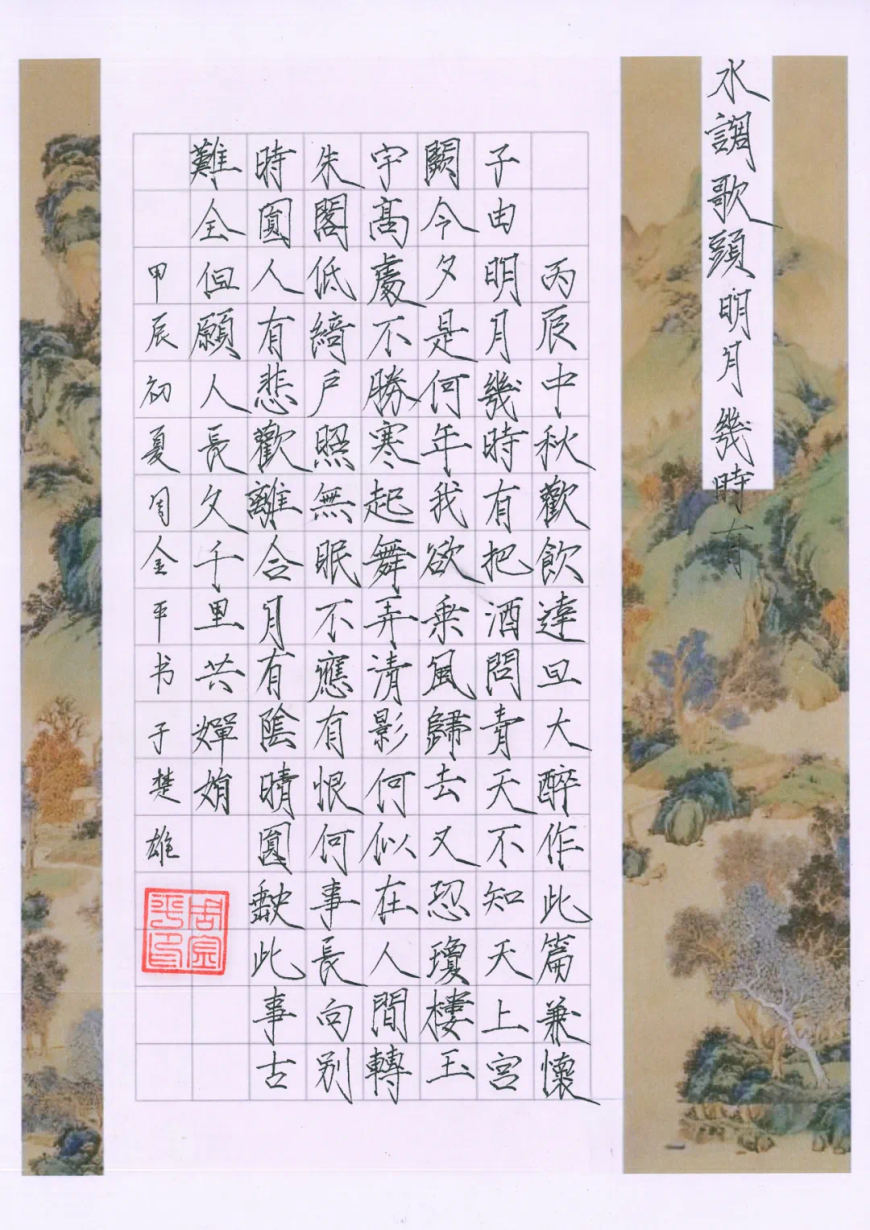 水調歌頭 明月幾時有
丙辰中秋歡飲達旦大醉作此篇兼懷
子由明月幾時有把酒問青天不知天上宮
闕今夕是何年我欲乘風歸去又恐瓊樓玉
宇高處不勝寒起舞弄清影何似在人間轉
朱閣低綺戶照無眠不應有恨何事長向别
時圓人有悲歡離合月有陰晴圓缺此事古
難全但願人長久千里共嬋娟
甲辰初夏周金平书于楚雄
周金平印